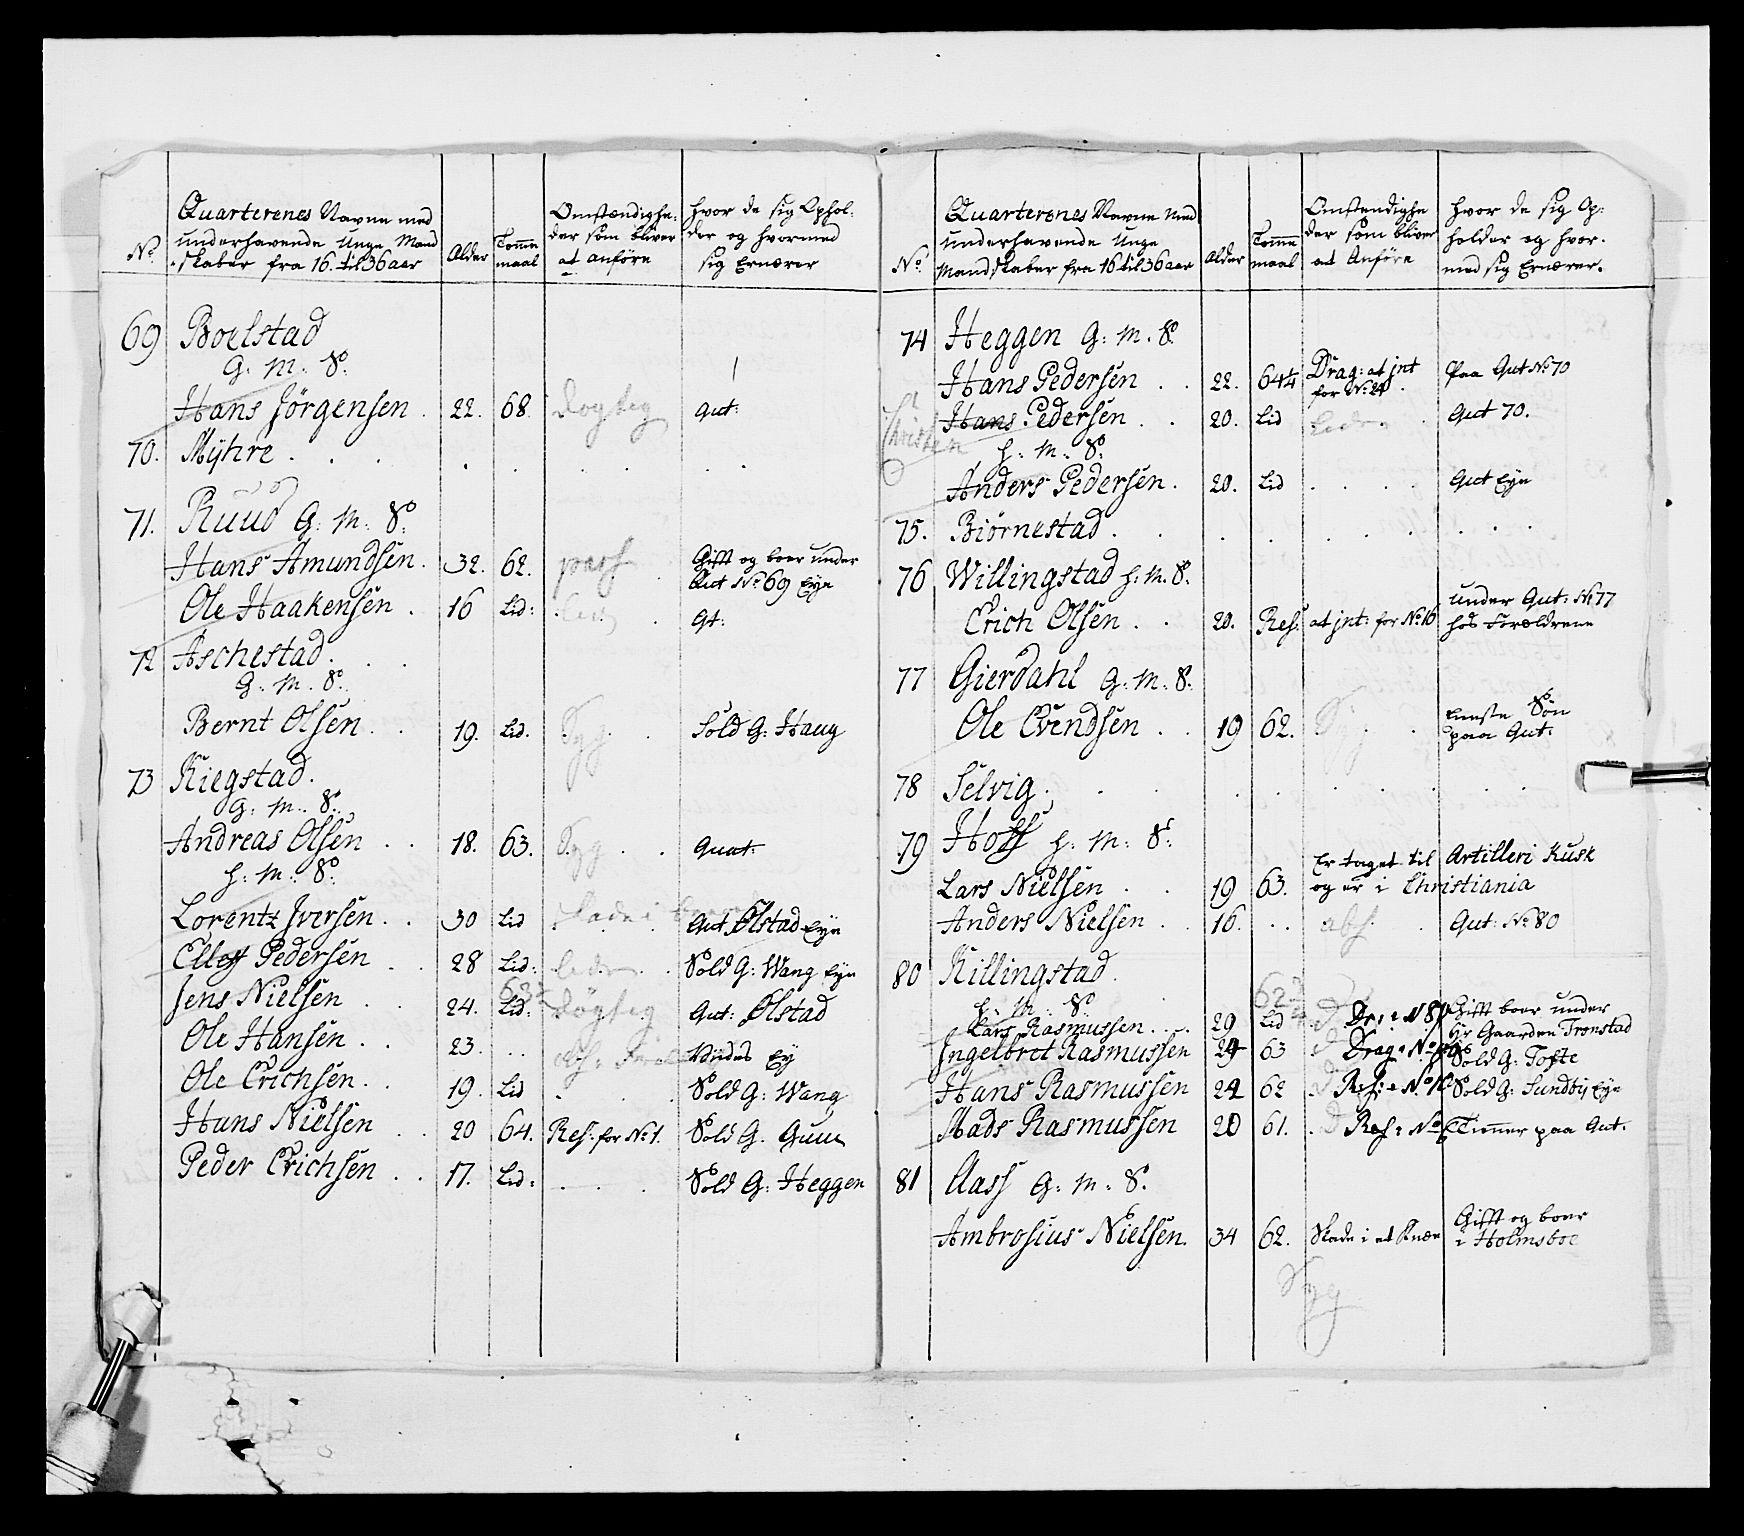 No.
Quarterenes Navne med
underhavende Unge Mand
skaber fra 16. til 36 aar
Alder
Tomme
maal
Omstændighe:
der som bliver
at anföre
hvor de sig Ophol:
der og hvormed
sig Ernærer
69 Boelstad
G. M. S:
Hans Jörgensen . 22. 68. dögtig Qut:
70. Myhre . . .
71. Ruud G: M: S:
Hans Amundsen . 32. 62. pass Gift og boer under
Qut No 69 Eye
Ole Haakensen . 16 Lid: led Qt:
72 Aschestad . . .
G. M. S:
Bernt Olsen . . 19. Lid. Syg Sold G: Haug
73 Kiegstad.
G: M: S:
Andreas Olsen . . 18. 63. Syg . . Quat:
h: M: S:
Lorentz Iversen . . 30 Lid skade i Qut Ølstad Eye
Ellef Pedersen . . 28 Lid: leden Sold G: Wang Eye
62½
Jens Nielsen . . 24. Lid: Dögtig Qut: Ølstad
Ole Hansen . . 23. . . Ey
Ole Erichsen . . 19. Lid . . . Sold G: Wang
Hans Nielsen . . 20 64. Res: for No 1. Sold G. Guun
Peder Erichsen . . 17. Lid: . . . Sold G: Heggen
No.
Quarterenes Navne med
underhavende Unge
Mandskaber fra 16 til 36 aar
Alder
Tomme
maal
Omstendighe
der som bliver
at Anföre
hvor de sig Op:
holder og hvor.
med sig Ernærer.
74 Heggen G: M. S:
Hans Pedersen . . 22. 64¼ Drag: at jnt
for No 24 . Paa Qut No 70
Christen
Hans Pedersen . . 20. Lid Leden Qut 70.
h: M: S:
Anders Pedersen . 20. Lid . . . . Qut Eye
75. Biörnestad . .
76 Willingstad h: M: S:
Erich Olsen . . 20. Res: at jnt: for No 16 under Qut: No 77
hos Forældrene
77 Gierdahl G: M: S:
Ole Evendsen . . 19 62. Syg Eeneste Søn
paa Qut.
78 Selvig . . .
79 Hoff h: M: S:
Lars Nielsen . . 19 63. Er taget til Artilleri Kusk
og er i Christiania
Anders Nielsen . . 16. . . abs. . Qut: No 80
80 Killingstad .
h: M: S:
Lars Rasmussen . . . 29 Lid Gift boer under
Gaarden Tronstad
Ingelbret Rasmussen 24 63 Drag: No Sold G: Tofte
Hans Rasmussen 22 62 Res: No 16 Sold G: Sundby Eye
Mads Rasmussen 20 61. Res: No Tiener paa Qut.
81 Aass G: M: S:
Ambrosius Nielsen. 34 62. Skade i et Knæe Gift og boer
i Holmsboe
Syg